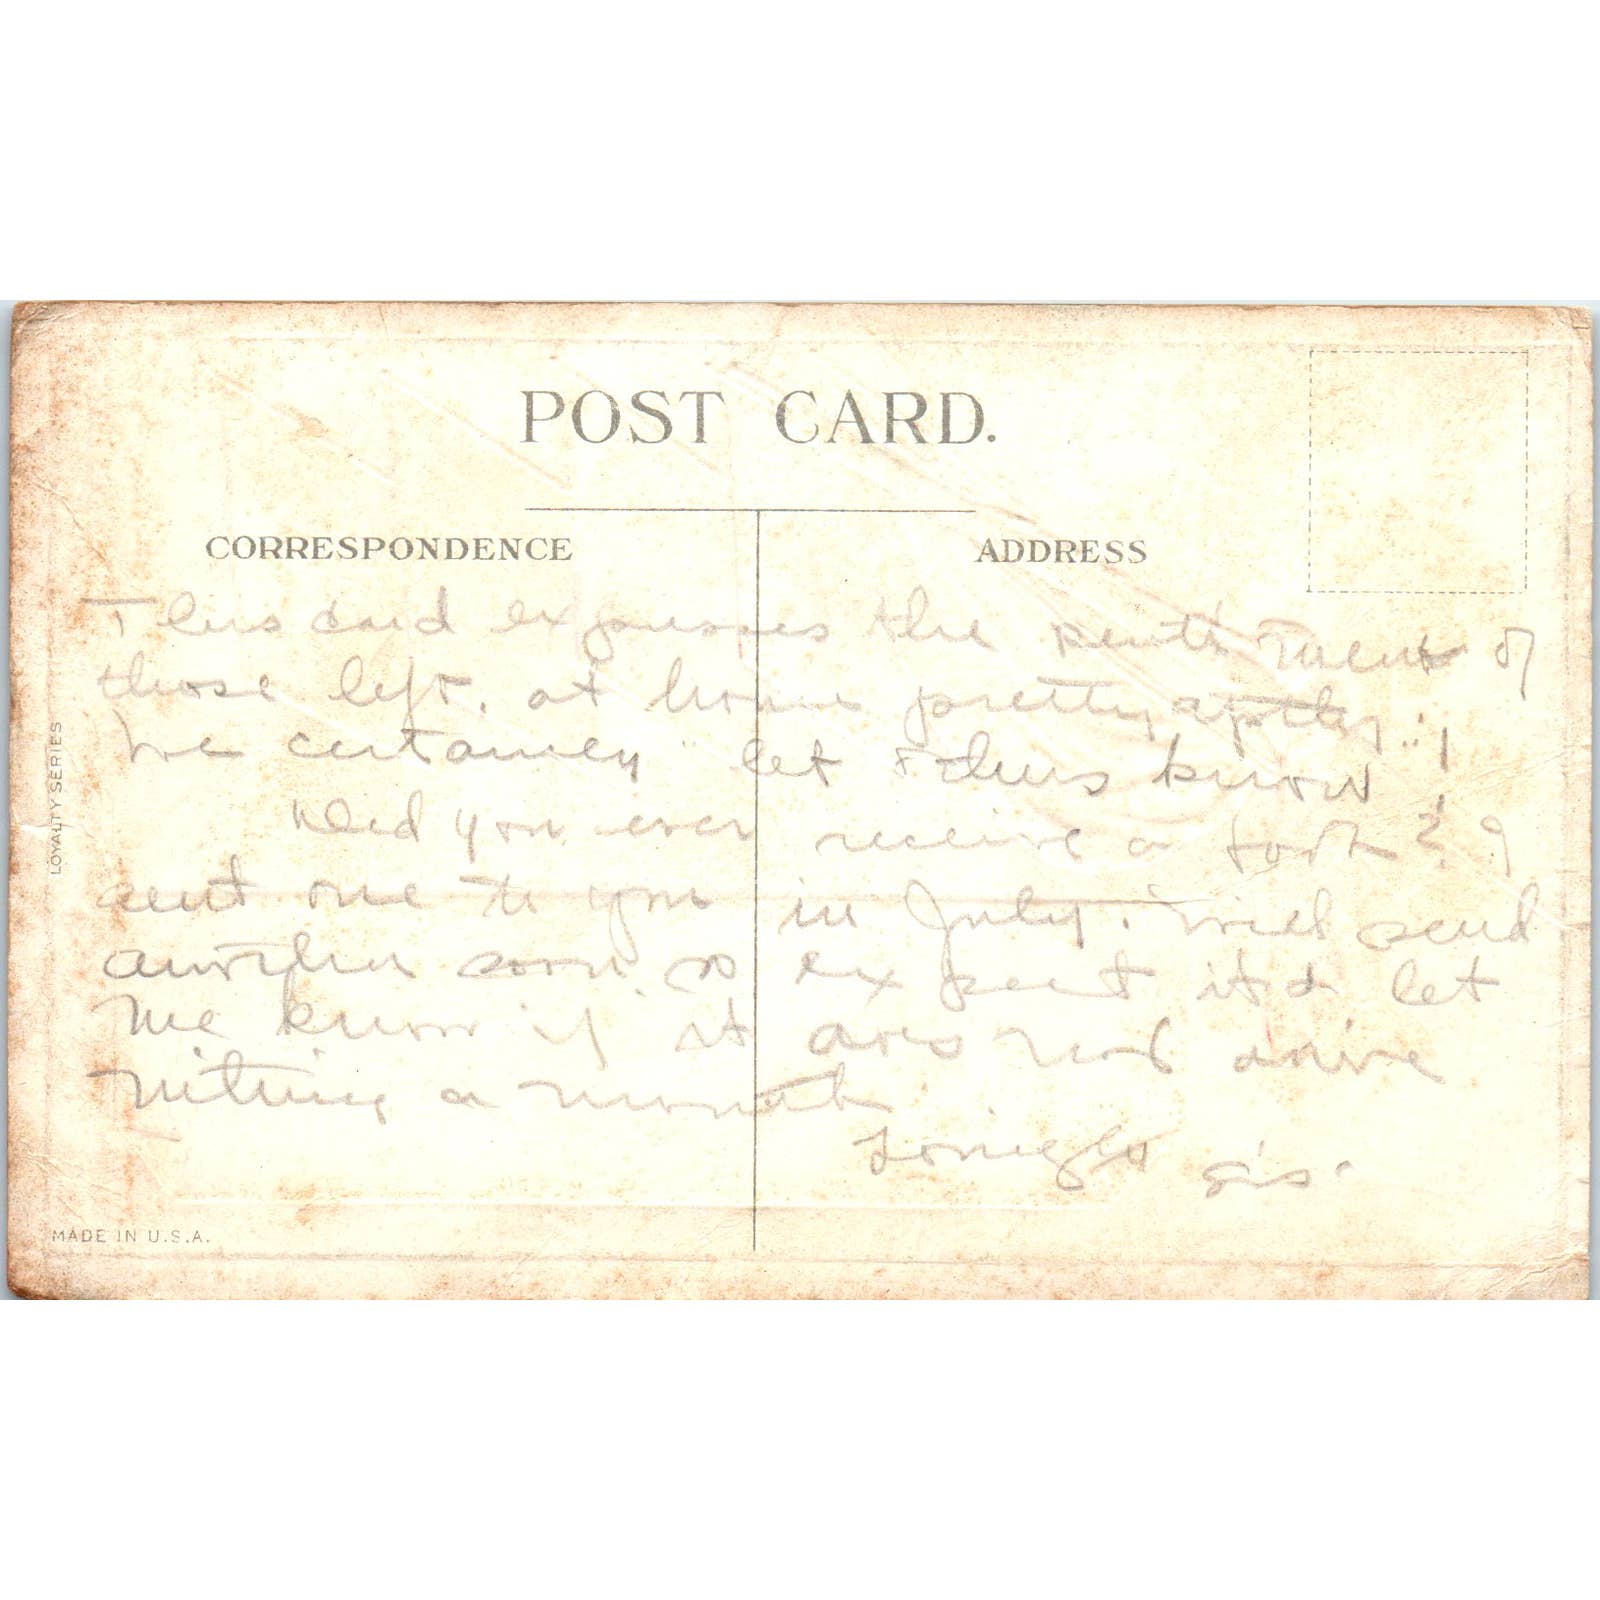 POST CARD.
CORRESPONDENCE
ADDRESS
This card expresses the sentiment of
those left. at home pretty aptly..!
We certainly let know!
Did you ever receive a ? I
sent one to you in July. Will send
another soon so expect it & let
me know if it does not arrive
a month
Tonight Sis.
LOYALTY SERIES
MADE IN U.S.A.